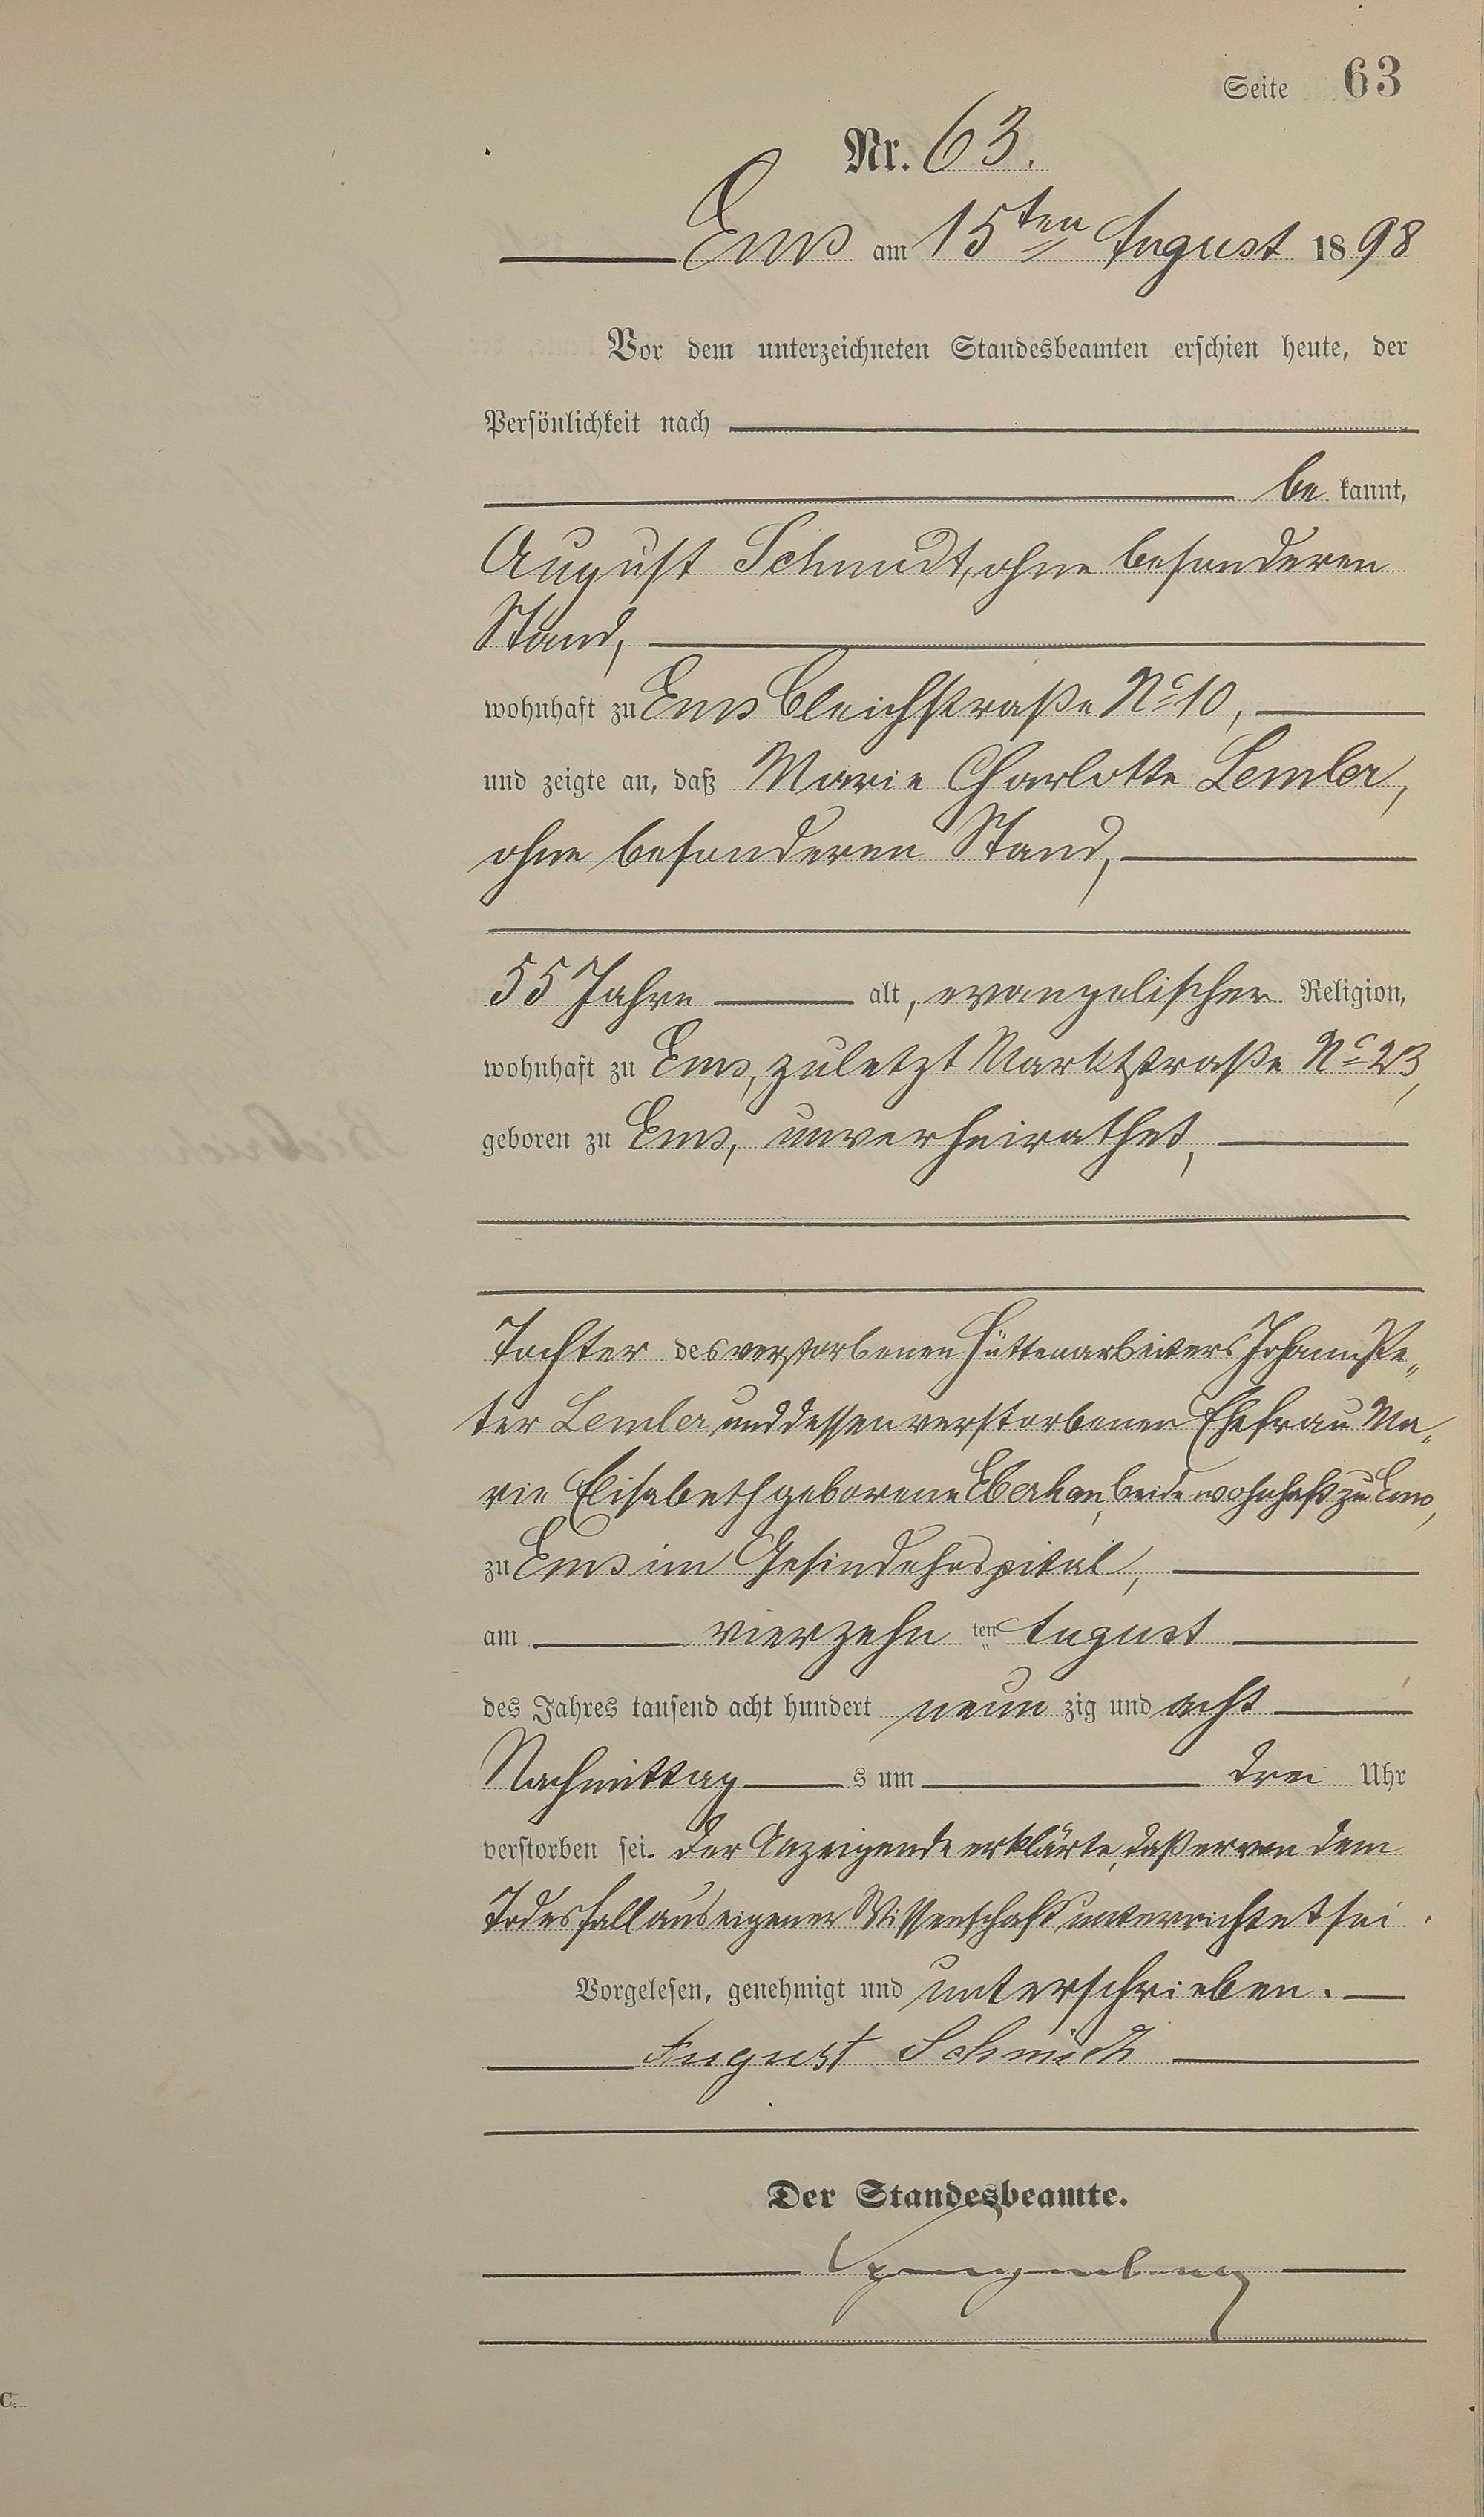 Seite 63
Nr. 63.
Ems am 15ten August 1898
Vor dem unterzeichneten Standesbeamten erschien heute, der
Persönlichkeit nach
be kannt,
August Schmidt, ohne besonderen
Stand,
wohnhaft zu Ems Bleichstraße No 10,
und zeigte an, daß Marie Charlotte Lemler,
ohne besonderen Stand,
55 Jahre alt, evangelischer Religion,
wohnhaft zu Ems, zuletzt Marktstraße No 23,
geboren zu Ems, unverheirathet,
Tochter des verstorbenen Hüttenarbeiters Johann Pe„
ter Lemler und dessen verstorbenen Ehefrau Ma„
rie Elisabeth geborene beide wohnhaft zu Ems,
zu Ems im Gesindehospital,
am vierzehn ten August
des Jahres tausend acht hundert neun zig und acht
Nachmittag s um drei Uhr
verstorben sei. Der Anzeigende erklärte, daß er von dem
Todesfall aus eigener Wissenschaft unterrichtet sei.
Vorgelesen, genehmigt und unterschrieben.
August Schmidt
Der Standesbeamte.
C.